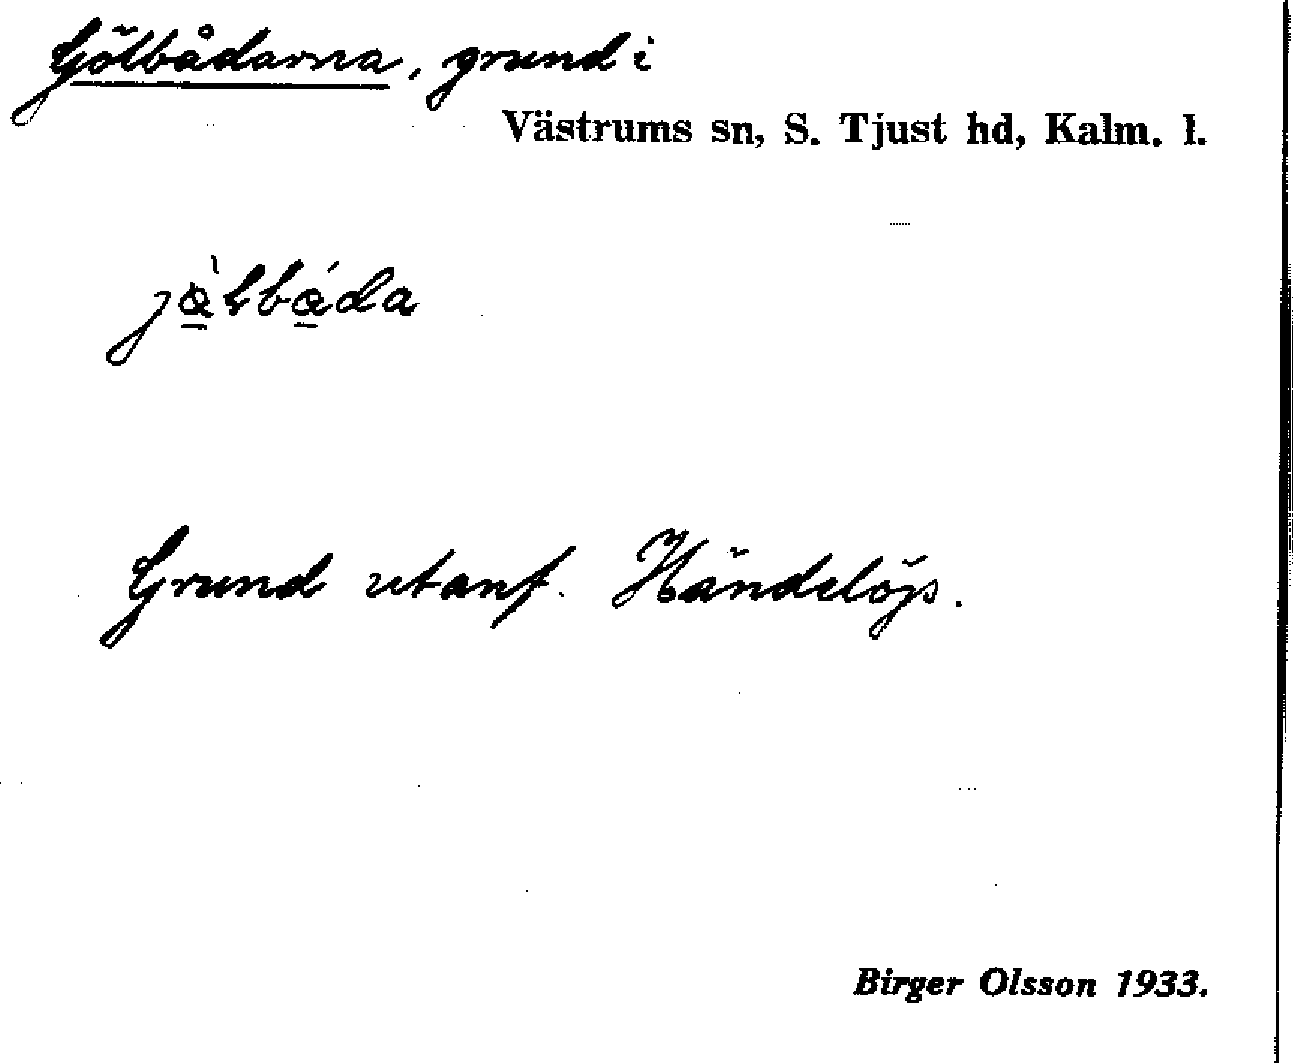 Gölbådarna, grund i
Västrums sn, S. Tjust hd, Kalm. l.
Grund utanf. Händelöp.
Birger Olsson 1933.